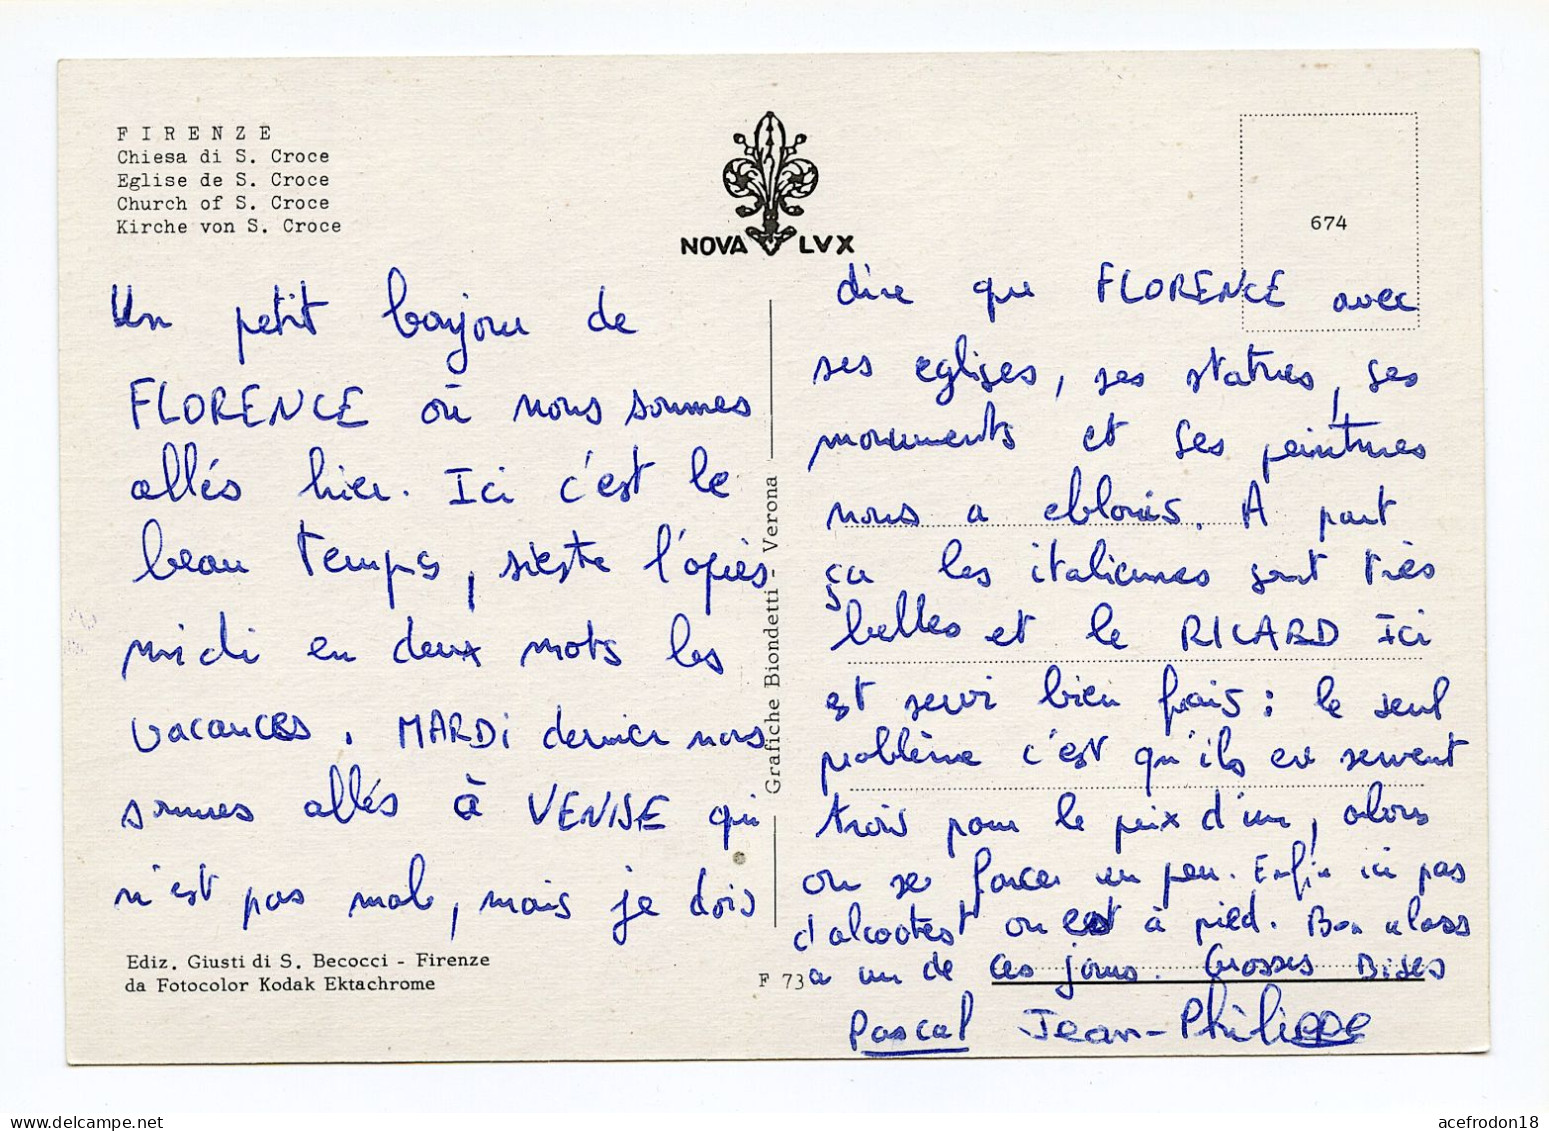 F I R E N Z E
Chiesa di S. Croce
Eglise de S. Croce
Church of S. Croce
Kirche von S. Croce
NOVA LVX
674
Un petit bonjour de
FLORENCE où nous sommes
allés hier. Ici c'est le
beau temps, sieste l'après
midi en deux mots les
vacances. MARDi dernier nous
sommes allés à VENISE qui
n'est pas mal, mais je dois
dire que FLORENCE avec
ses eglises, ses statues, ses
monuments et ses peintures
nous a eblouis. A part
ça les italiennes sont très
belles et le RICARD Ici
est servi bien frais ; le seul
problème c'est qu'ils en servent
trois pour le prix d'un, alors
on se force un peu. Enfin ici pas
d'alcootest on est à pied. Bon
a un de ces jours. Grosses Bises
Pascal Jean-Philippe
Grafiche Biondetti - Verona
Ediz. Giusti di S. Becocci - Firenze
da Fotocolor Kodak Ektachrome
F 73
acefrodon18